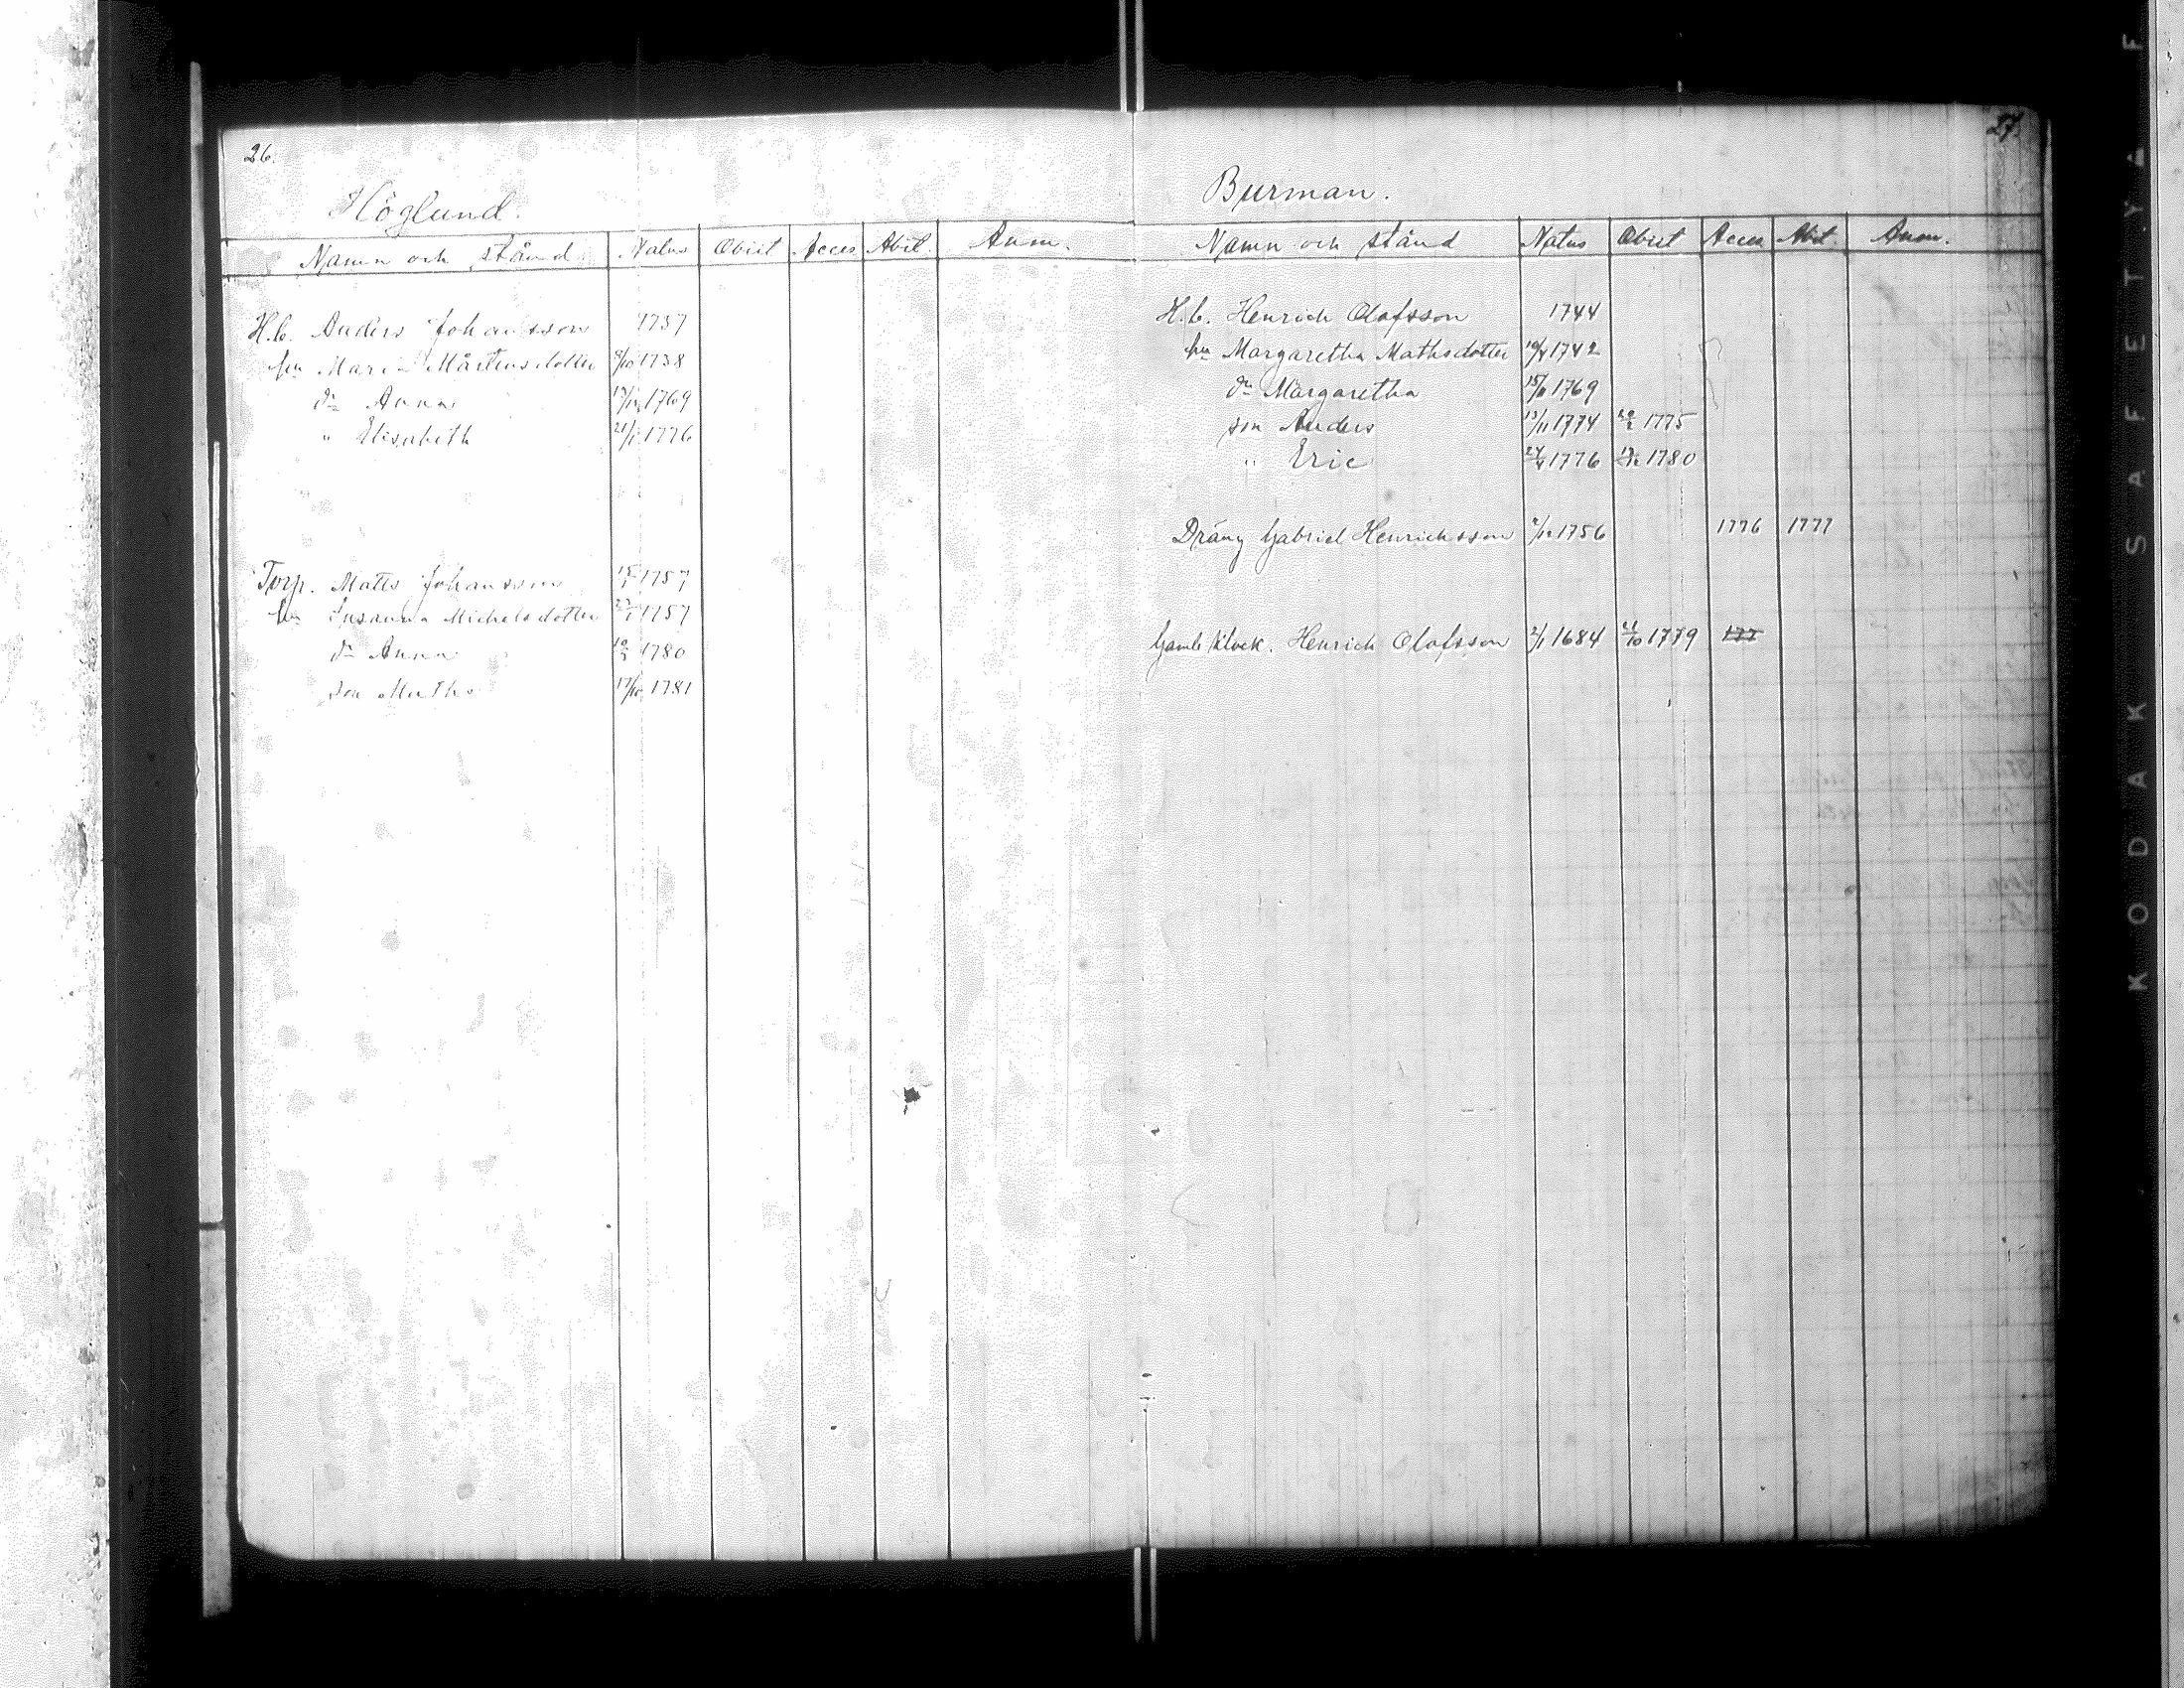 26.
Höglund.
Namn och stånd Natus Obiit Acces Abiit. Anm.
H.b. Anders Johansson 1737
hu Maria Mårtensdotter 9/10 1738
dr Anna 1769
" Elisabeth 1776
Torp. Matts Johansson 1757
hu Susanna Michelsdotter 1757
dr Anna 1780
son Maths 17/10 1781
27.
Burman.
Namn och stånd Natus Obiit Acces Abiit Anm.
H.b. Henrich Olofsson 1744
hu Margaretha Mathsdotter 1742
dr Margaretha 1769
son Anders 13/11 1774 1775
" Eric 24/4 1776 1780
Dräng Gabriel Henrichsson 1756 1776 1777
Gamle klock. Henrich Olofsson 2/1 1684 1779 177
KODAK SAFETY